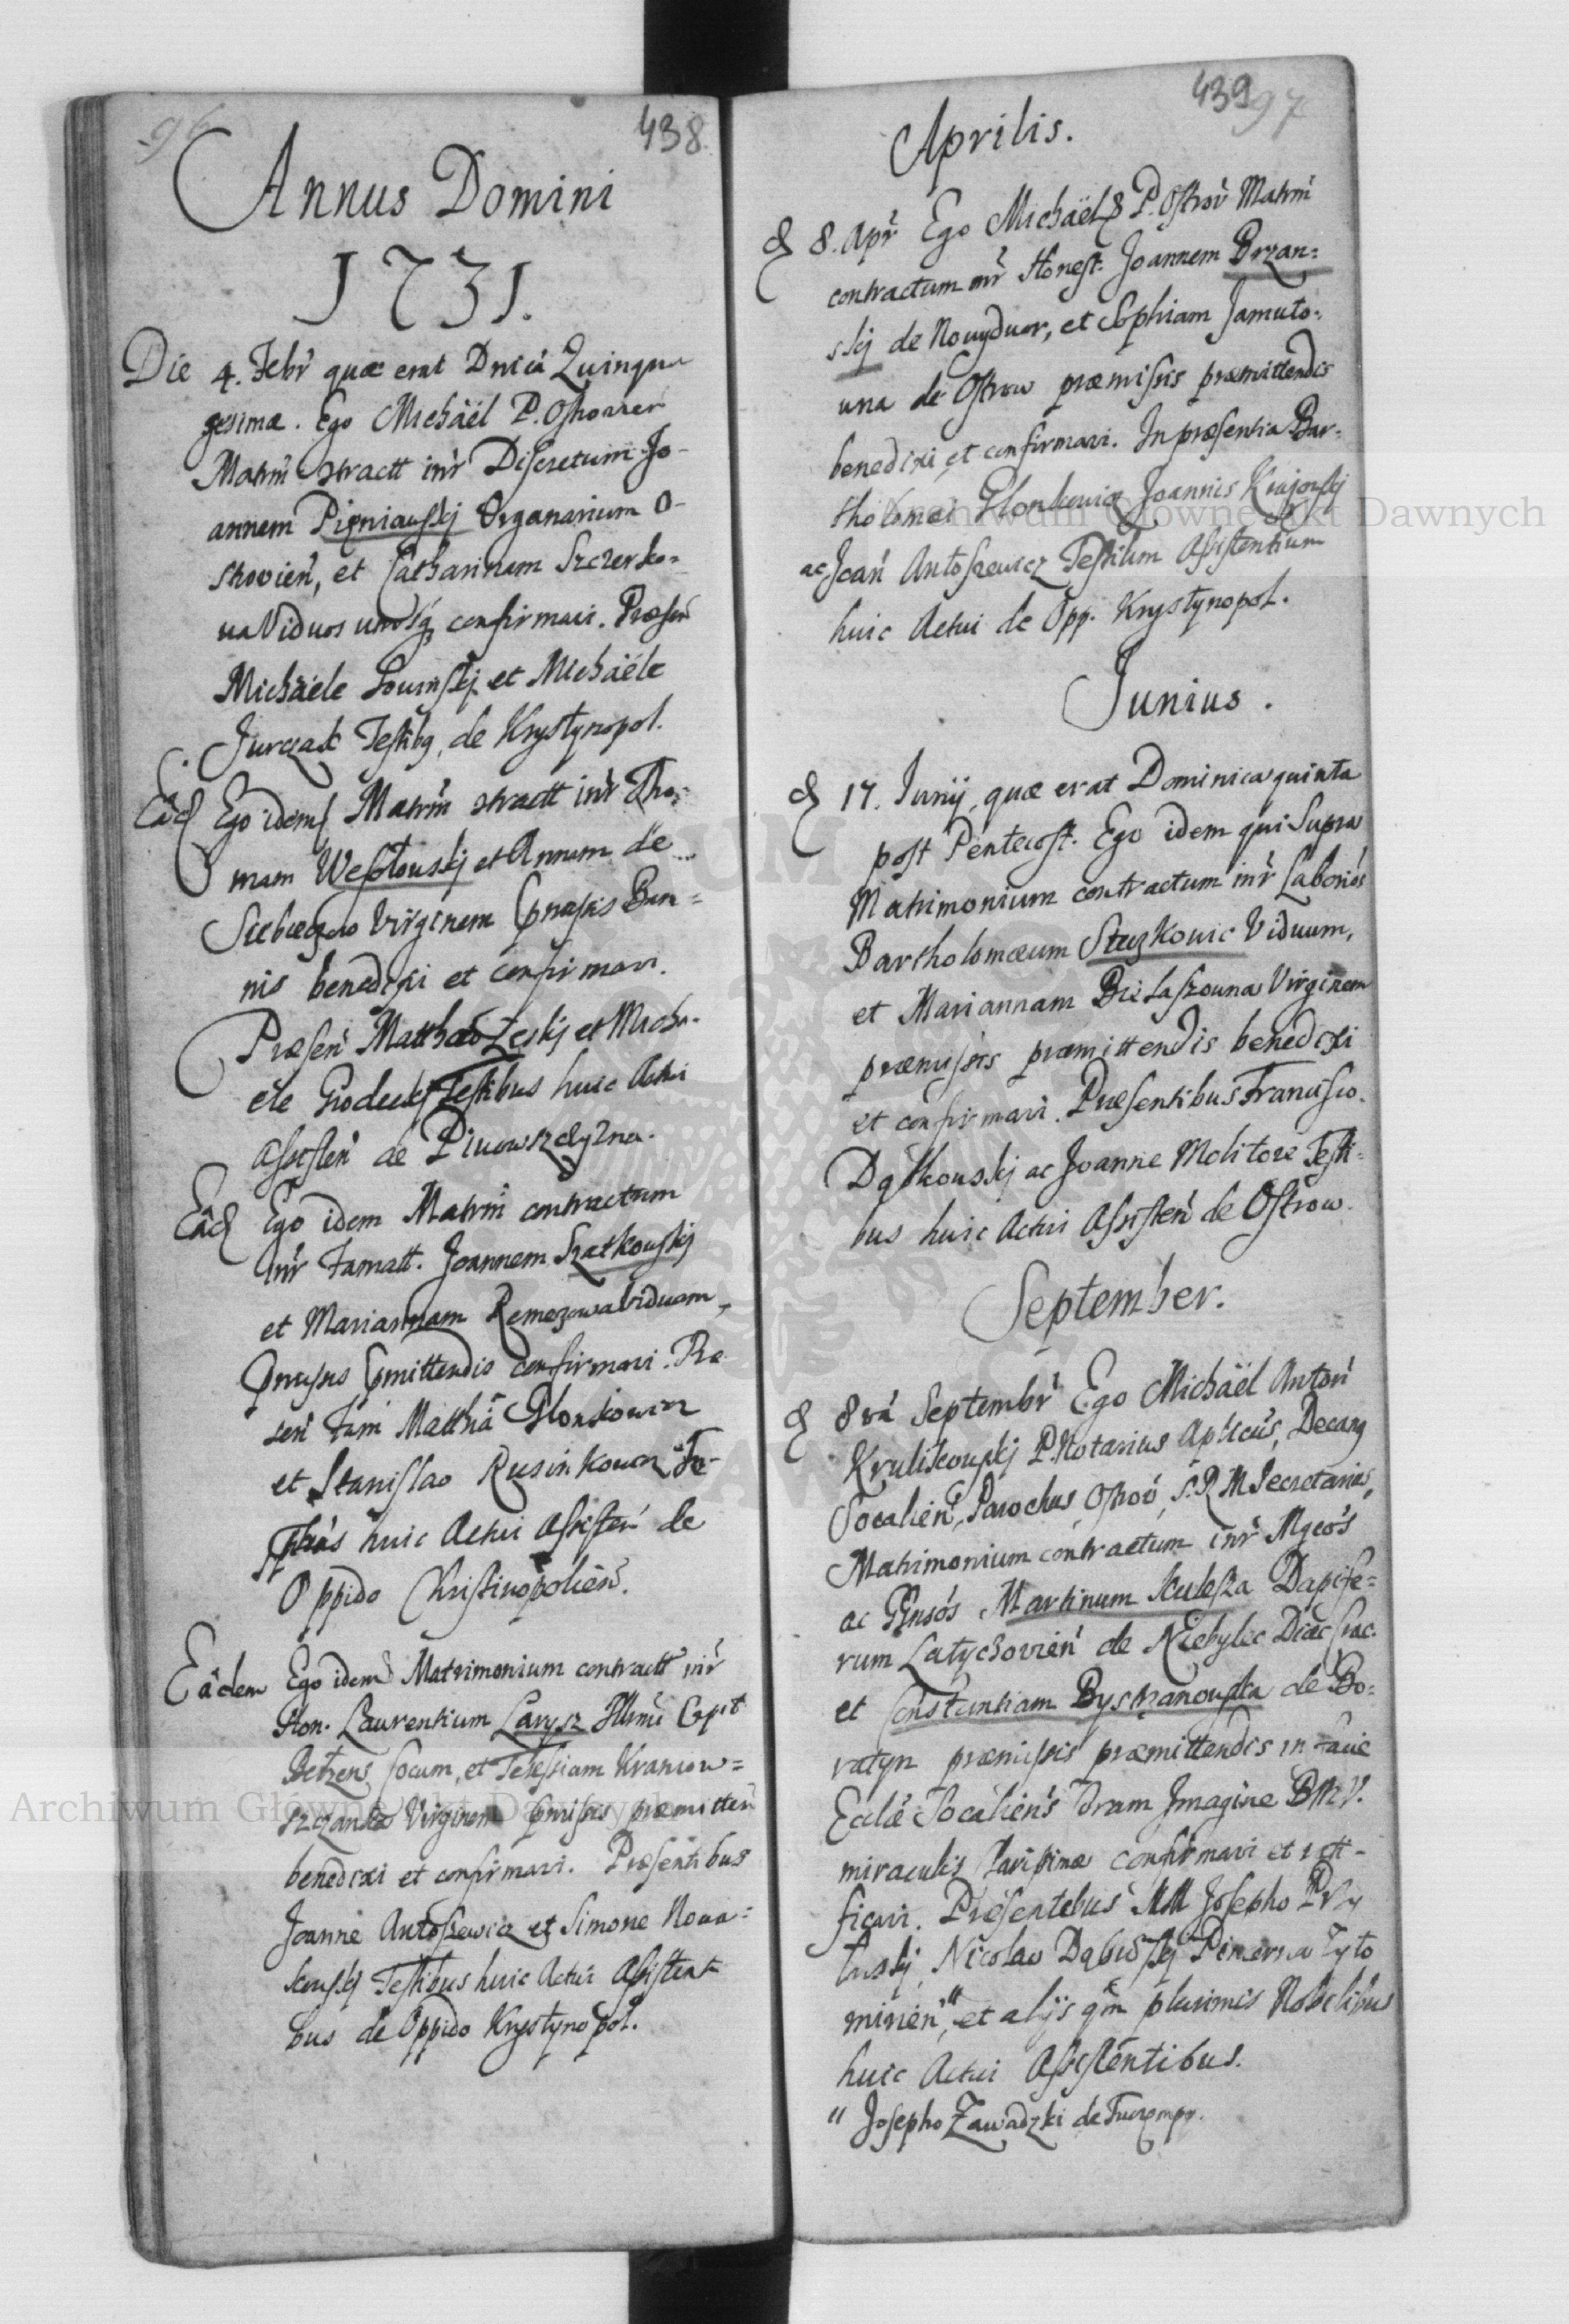 96
438
Annus Domini
1731.
Die 4. Febr quæ erat Dnica Quinqua
gesimæ. Ego Michaël P. Ostrovien
Matrm ctractt intr Discretum Jo-
annem Pięniawskj Organarium O-
strovień, et Catharinam Szczerko-
wa Viduos confirmavi. Præsen
Michaele et Michaële
Jurczak Testibg, de Krystynopol.
Eâd Ego idem Matrm ctractt intr Tho-
mam Wesołowskj et Annam de
Virginem præmssis Ban-
nis benedixi et confirmavi.
Præsen Matthæo Zeskj et Micha-
ele Testibus huic Actui
Assisten de
Eâd Ego idem Matrm contractum
intr Famatt. Joannem Szatkowskj
et Mariannam Remezowa Viduam,
pmissis pmittendis confirmavi. Præ
sen Fam Matthæ
et Stanislao Te-
stibus huic Actui Assisten de
Oppido Christinopolień.
Eâdem Ego idem Matrimonium contractt intr
Hon. Laurentium Larysz Illmi Capit
Cocum, et
Virginem pmissis præmitten
benedixi et confirmavi. Præsentibus
Joanne Antoszewicz et Simone Nowa-
kowskj Testibus huic Actui Assistent
bus de Oppido Krystynopol.
439
97
Aprilis.
d 8. Apr Ego Michaël P. Ostrov Matrm
contractum intr Honest. Joannem Brzan-
skj de Nowydwor, et Sophiam Jamuto-
wna de Ostrow præmissis præmittendis
benedixi et confirmavi. In præsentia Bar-
tholomæi Joannis
ac Joań Antoszewicz Testium Assistentium
huic Actui de Opp. Krystynopol.
Junius.
d 17. Junij, quæ erat Dominica quinta
post Pentecost. Ego idem qui Supra
Matrimonium contractum intr Laborios
Bartholomæum Viduum,
et Mariannam Bielaszowna Virginem
præmissis præmittendis benedixi
et confirmavi. Præsentibus Francisco
Dątkowskj ac Joanne Molitore Testi-
bus huic Actui Assisteń de Ostrow.
September.
d 8va Septembr Ego Michaël Antoń
Krulikowskj P. Notarius Aplicus, Decang
Socalień, Parochus Ostrov, S. R. M Secretarius,
Matrimonium contractum intr Mgcos
ac Gnsos Martinum Kulesza Dapife-
rum Latychovień de Niebylec Diæc Crac.
et Constantiam Bystrzanowska de Bo-
ratyn præmissis præmittendis in facie
Ecclæ Socaliens coram Imagine BMV.
miraculis Clarissimæ confirmavi et rati-
ficavi. Præsentibus MM Josepho Przy
łuskj, Nicolao Pincerna Żyto
mirień, " et alijs qm plurimis Nobilibus
huic Actui Assistentibus.
" Josepho Zawadzki de
Archiwum Główne Akt Dawnych
Archiwum Główne Akt Dawnych